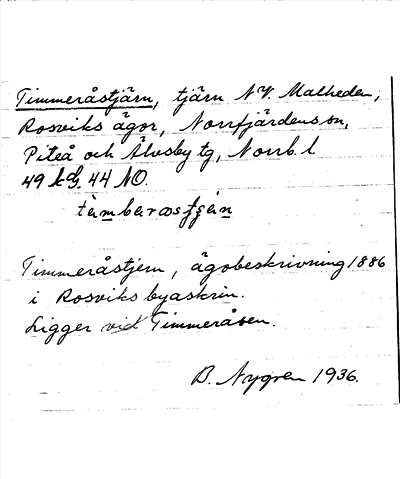 Timmeråstjärn, tjärn N.V. Malheden,
Rosviks ägor, Norrfjärdens sn,
Piteå och Älvsby tg, Norrb. l.
49 kd. 44 NO.
Timmeråstjern, ägobeskrivning 1886
i Rosviks byaskrin.
Ligger vid Timmeråsen.
B. Nygren 1936.